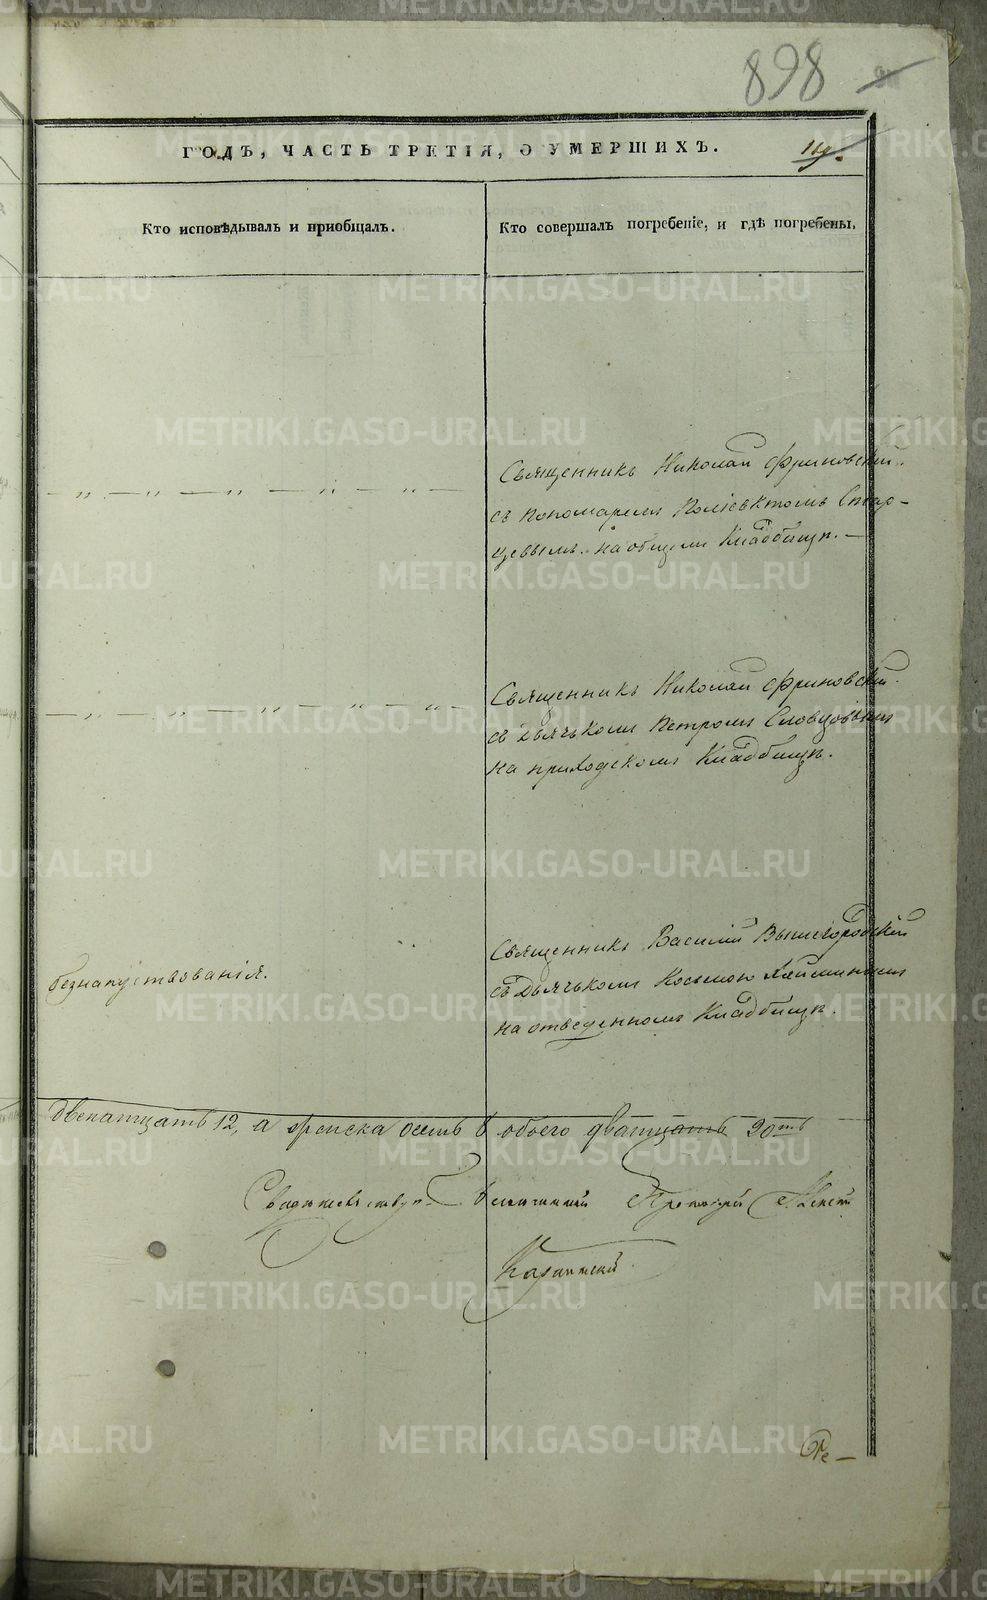 898
ГОДЪ, ЧАСТЬ ТРЕТІЯ, О УМЕРШИХЪ.
Кто исповѣдывалъ и приобщалъ.
Кто совершалъ погребеніе, и гдѣ погребены.
Священникъ Николай Фриновскій
съ пономаремъ Поліевктомъ Стар-
цевымъ. на общемъ Кладбищѣ. —
Священникъ Николай Фриновскій.
съ дьячькомъ Петромъ Словцовымъ
на приходскомъ Кладбищѣ.
безнапутствованія.
Священникъ Василій Вышегородскій
съ Дьячькомъ Космою
на отведенномъ Кладбищѣ.
двенатцать 12, а женска осемь 8 обоего дватцать 20ть
Протоіерей
METRIKI.GASO-URAL.RU